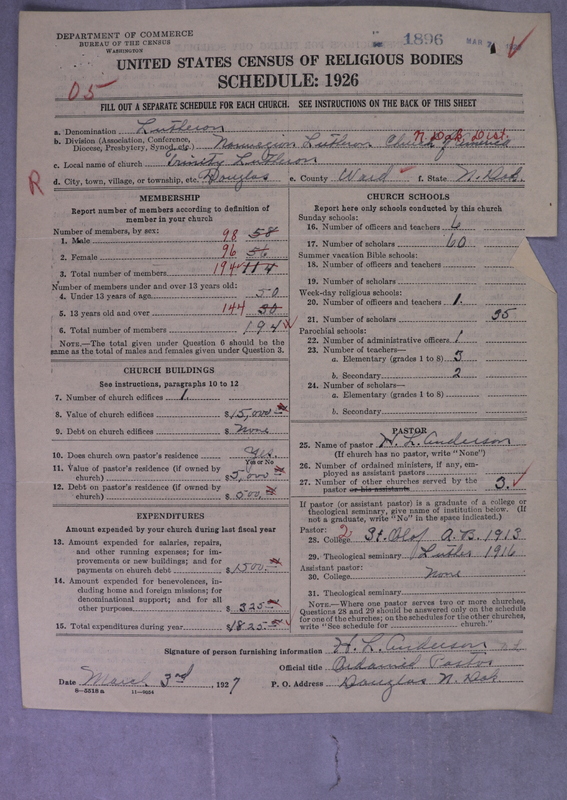 DEPARTMENT OF COMMERCE
BUREAU OF THE CENSUS
WASHINGTON
1896
MAR
UNITED STATES CENSUS OF RELIGIOUS BODIES
SCHEDULE: 1926
05
FILL OUT A SEPARATE SCHEDULE FOR EACH CHURCH. SEE INSTRUCTIONS ON THE BACK OF THIS SHEET
a. Denomination Lutheran
b. Division (Association, Conference, Diocese, Presbytery, Synod, etc.) Norwegian Lutheran Church of America N. Dak. Dist.
c. Local name of church Trinity Lutheran
R
d. City, town, village, or township, etc. Douglas e. County Ward f. State N. Dak.
MEMBERSHIP
Report number of members according to definition of member in your church
Number of members, by sex:
1. Male 98 58
2. Female 96 56
3. Total number of members 194 114
Number of members under and over 13 years old:
4. Under 13 years of age 50
5. 13 years old and over 144 30
6. Total number of members 194
NOTE.—The total given under Question 6 should be the same as the total of males and females given under Question 3.
CHURCH BUILDINGS
See instructions, paragraphs 10 to 12
7. Number of church edifices 1.
8. Value of church edifices $15,000
9. Debt on church edifices $ None
10. Does church own pastor's residence Yes.
Yes or No
11. Value of pastor's residence (if owned by church) $5,000
12. Debt on pastor's residence (if owned by church) $ 500.
EXPENDITURES
Amount expended by your church during last fiscal year
13. Amount expended for salaries, repairs, and other running expenses; for improvements or new buildings; and for payments on church debt $1500.
14. Amount expended for benevolences, including home and foreign missions; for denominational support; and for all other purposes $ 325
15. Total expenditures during year $1825
CHURCH SCHOOLS
Report here only schools conducted by this church
Sunday schools:
16. Number of officers and teachers 6
17. Number of scholars 60
Summer vacation Bible schools:
18. Number of officers and teachers
19. Number of scholars
Week-day religious schools:
20. Number of officers and teachers 1.
21. Number of scholars 35
Parochial schools:
22. Number of administrative officers 1
23. Number of teachers—
a. Elementary (grades 1 to 8) 3
b. Secondary 2
24. Number of scholars—
a. Elementary (grades 1 to 8)
b. Secondary
PASTOR
25. Name of pastor H. L. Anderson
(If church has no pastor, write "None")
26. Number of ordained ministers, if any, employed as assistant pastors
27. Number of other churches served by the pastor or his assistants 3.
If pastor (or assistant pastor) is a graduate of a college or theological seminary, give name of institution below. (If not a graduate, write "No" in the space indicated.)
Pastor: 2
28. College St. Olaf A.B. 1913
29. Theological seminary Luther 1916
Assistant pastor:
30. College None
31. Theological seminary
NOTE.—Where one pastor serves two or more churches, Questions 28 and 29 should be answered only on the schedule for one of the churches; on the schedules for the other churches, write "See schedule for church."
Signature of person furnishing information H. L. Anderson
Official title Ordained Pastor
Date March 3rd, 1927 P. O. Address Douglas N. Dak.
8—5518 a 11—9034